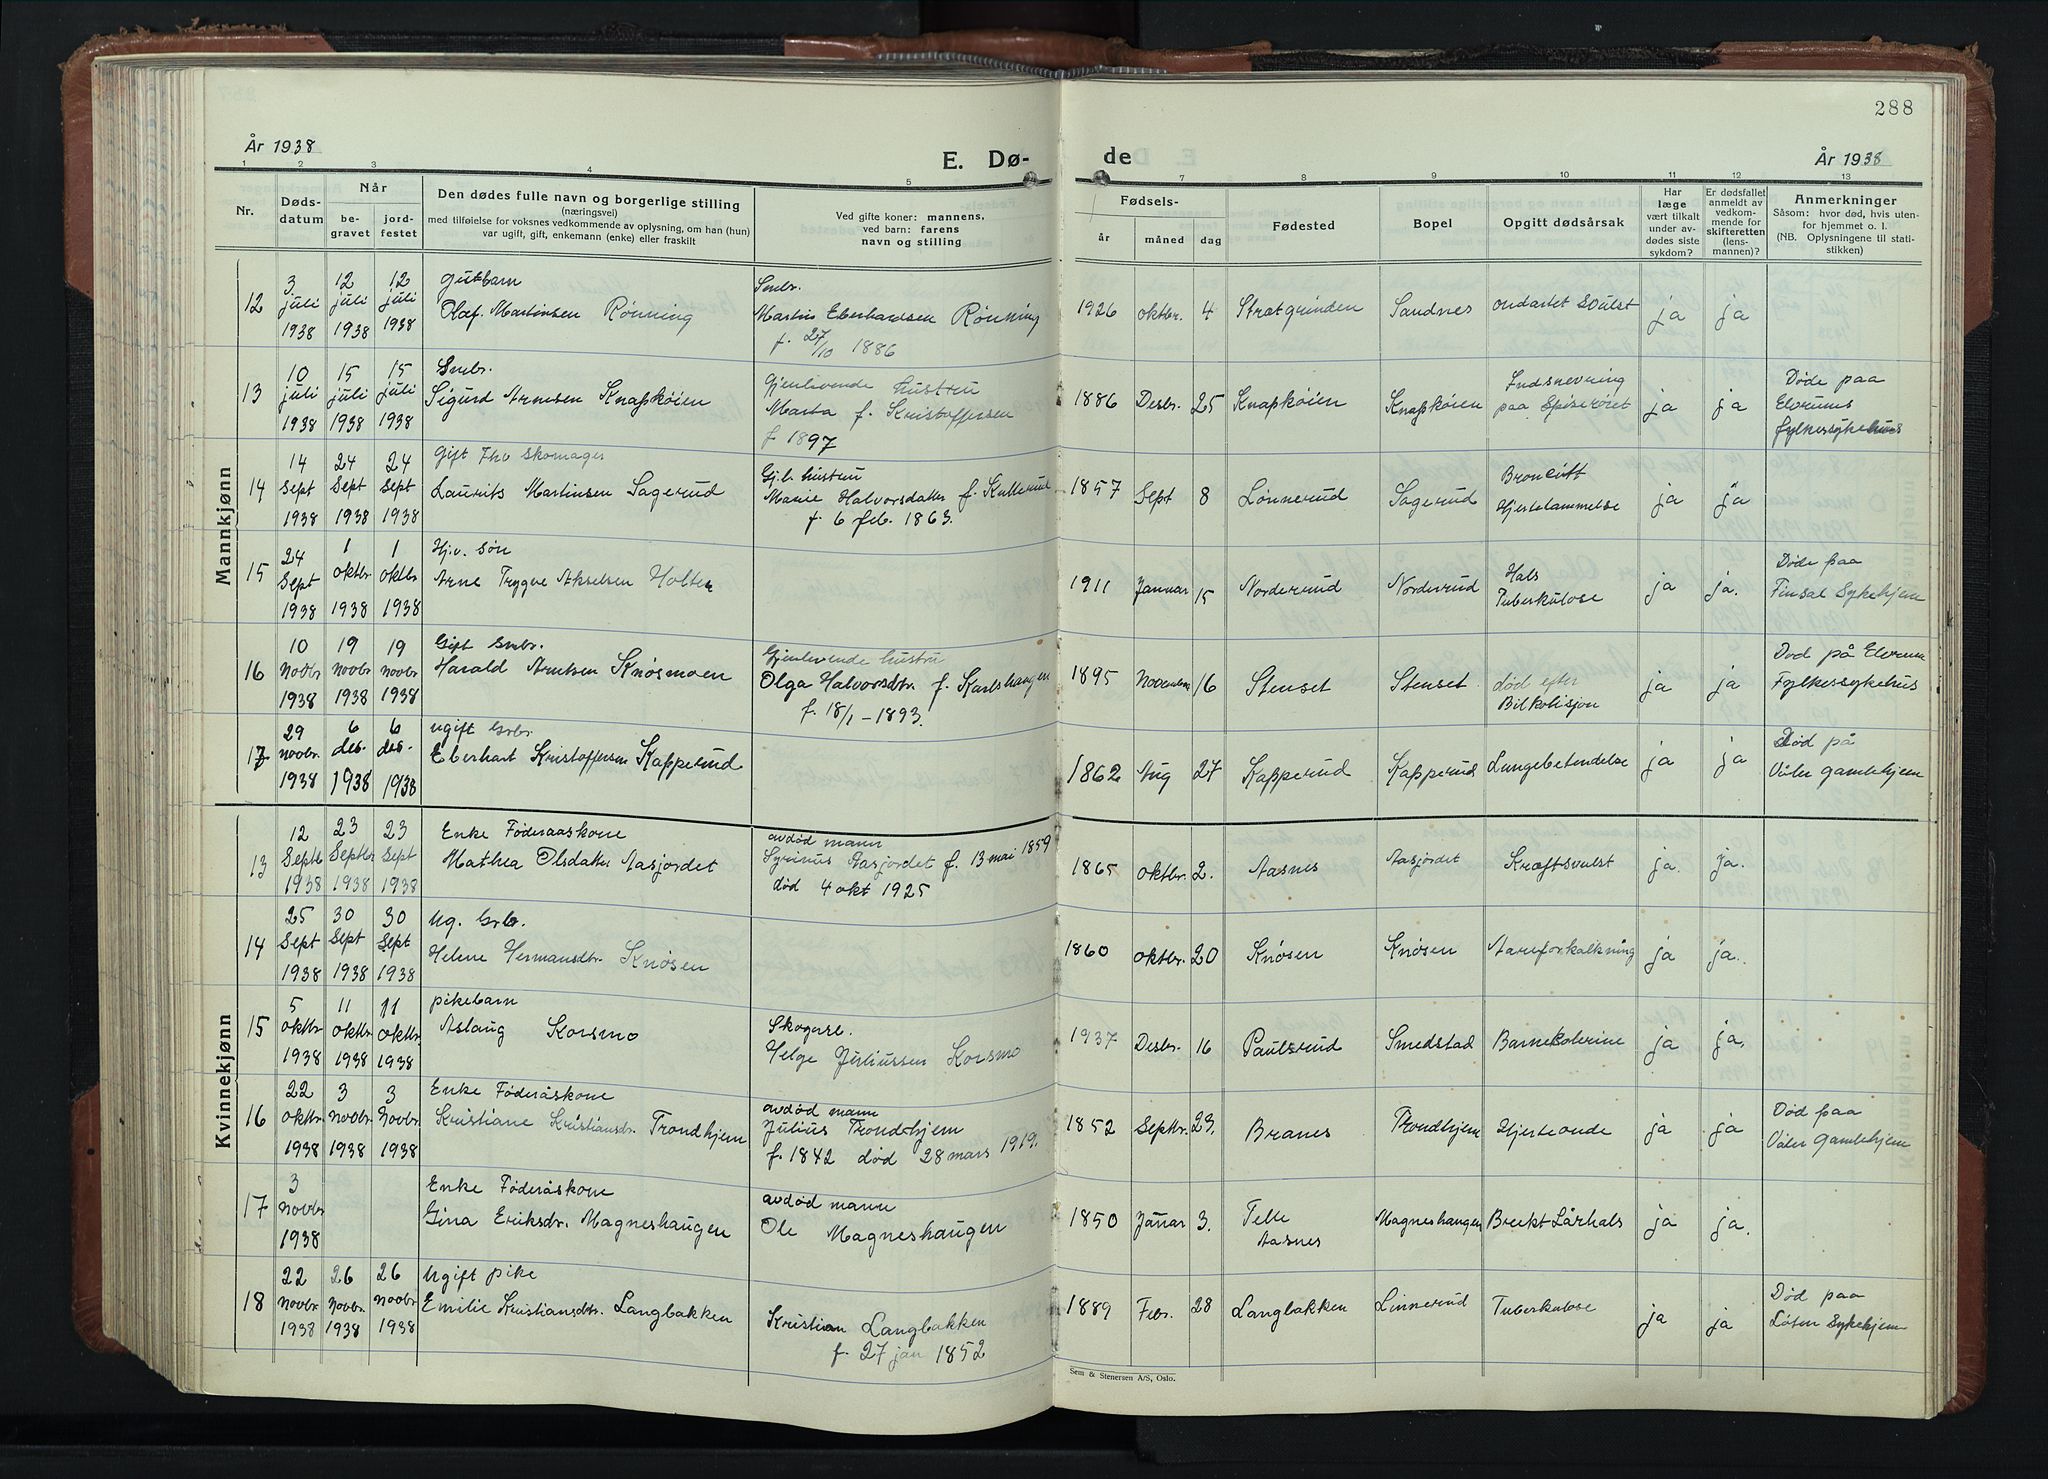 288
År 1938
E. Dø-
de
År 1938
1 2 3 4 5 7 8 9 10 11 12 13
Nr.
Døds-
datum
Når
be-
gravet
jord-
festet
Den dødes fulle navn og borgerlige stilling
(næringsvei)
med tilføielse for voksnes vedkommende av oplysning, om han (hun)
var ugift, gift, enkemann (enke) eller fraskilt
Ved gifte koner: mannens,
ved barn: farens
navn og stilling
Fødsels-
år
måned
dag
Fødested
Bopel
Opgitt dødsårsak
Har
læge
vært tilkalt
under av-
dødes siste
sykdom?
Er dødsfallet
anmeldt av
vedkom-
mende for
skifteretten
(lens-
mannen)?
Anmerkninger
Såsom: hvor død, hvis uten-
for hjemmet o. l.
(NB. Oplysningene til stati-
stikken)
Mannkjønn
12
3 juli 1938
12 juli 1938
12 juli 1938
Gutbarn
Olaf. Martinsen Rønning
Smbr.
Martin Eberhardsen Rønning
f. 27/10 1886
1926 oktbr. 4 Strætgrinden Sandnes ondartet Svulst ja ja
13
10 juli 1938
15 juli 1938
15 juli 1938
Smbr.
Sigurd Arnesen Knapkøien
Gjenlevende hustru
Marta f. Kristoffersen
f 1897
1886 Desbr. 25 Knapkøien Knapkøien
Indsnevring
paa Spiserøret
ja ja
Døde paa
Elverums
fylkessykehus
14
14 Sept 1938
24 Sept 1938
24 Sept 1938
Gift Fhv Skomager
Laurits Martinsen Sagerud
Gj.l. hustru
Marie Halvorsdatter f. Kulterud
f. 6 feb. 1863.
1857 Sept 8 Lønnerud Sagerud
Broncitt
Hjertelammelse
ja ja
15
24 Sept 1938
1 oktbr 1938
1 oktbr 1938
Hjv. Søn
Arne Trygve Akselsen Holter
1911 Januar 15 Norderud Norderud
Hals
Tuberkulose
ja ja.
Døde paa
Finsal Sykehjem
16
10 novbr 1938
19 novbr 1938
19 novbr 1938
Gift Smbr.
Harald Arntsen Knøsmoen
Gjenlevende hustru
Olga Halvorsdtr. f. Karlshaugen
f. 18/1 – 1893.
1895 November 16 Stenset Stenset
død efter
Bilkolisjon
ja ja
Død på Elverum
Fylkessykehus
17
29 novbr. 1938
6 des. 1938
6 des. 1938
ugift Grbr.
Eberhart Kristoffersen Kapperud
1862 Aug 27 Kapperud Kapperud Lungebetendelse ja ja
Død på
Våler gamlehjem
Kvinnekjønn
13
12 Septbr 1938
23 Septbr 1938
23 Sept 1938
Enke Føderaaskone
Mathea Olsdatter Aasjordet
avdød mann
Syrinus Aasjordet f. 13 mai 1859
død 4 okt 1925
1865 oktbr. 2. Aasnes Aasjordet Kræftsvulst ja. ja.
14
25 Sept 1938
30 Sept 1938
30 Sept 1938
Ug. Grbr.
Helene Hermansdtr. Knøsen
1860 oktbr. 20 Knøsen Knøsen Aareforkalkning ja ja.
15
5 oktbr 1938
11 oktbr 1938
11 oktbr 1938
pikebarn
Aslaug Korsmo
Skogarb.
Helge Juliussen Korsmo
1937 Desbr. 16 Paulsrud Smedstad Barnekolerine ja ja.
16
22 oktbr. 1938
3 novbr. 1938
3 Novbr. 1938
Enke Føderåskone
Kristiane Kristiansdr. Trondhjem
avdød mann
Julius Trondhjem
f. 1842 død 28 mars 1919.
1852 Septbr. 23. Branes Trondhjem Hjerteonde ja ja
Død paa
Våler Gamlehjem
17
3 novbr 1938
Enke Føderåskone
Gina Eriksdr. Magneshaugen
avdød mann
Ole Magneshaugen
1850 Januar 3.
Aasnes
Magneshaugen Brekt Lårhals ja ja.
18
22 novbr. 1938
26 novbr. 1938
26 novbr 1938
Ugift pike
Emilie Kristiansdtr. Langbakken
Kristian Langbakken
f. 27 jan 1852
1889 Febr. 28 Langbakken Linnerud Tuberkulose ja ja
Død paa
Løten Sykehjem
Sem & Stenersen A/S, Oslo.